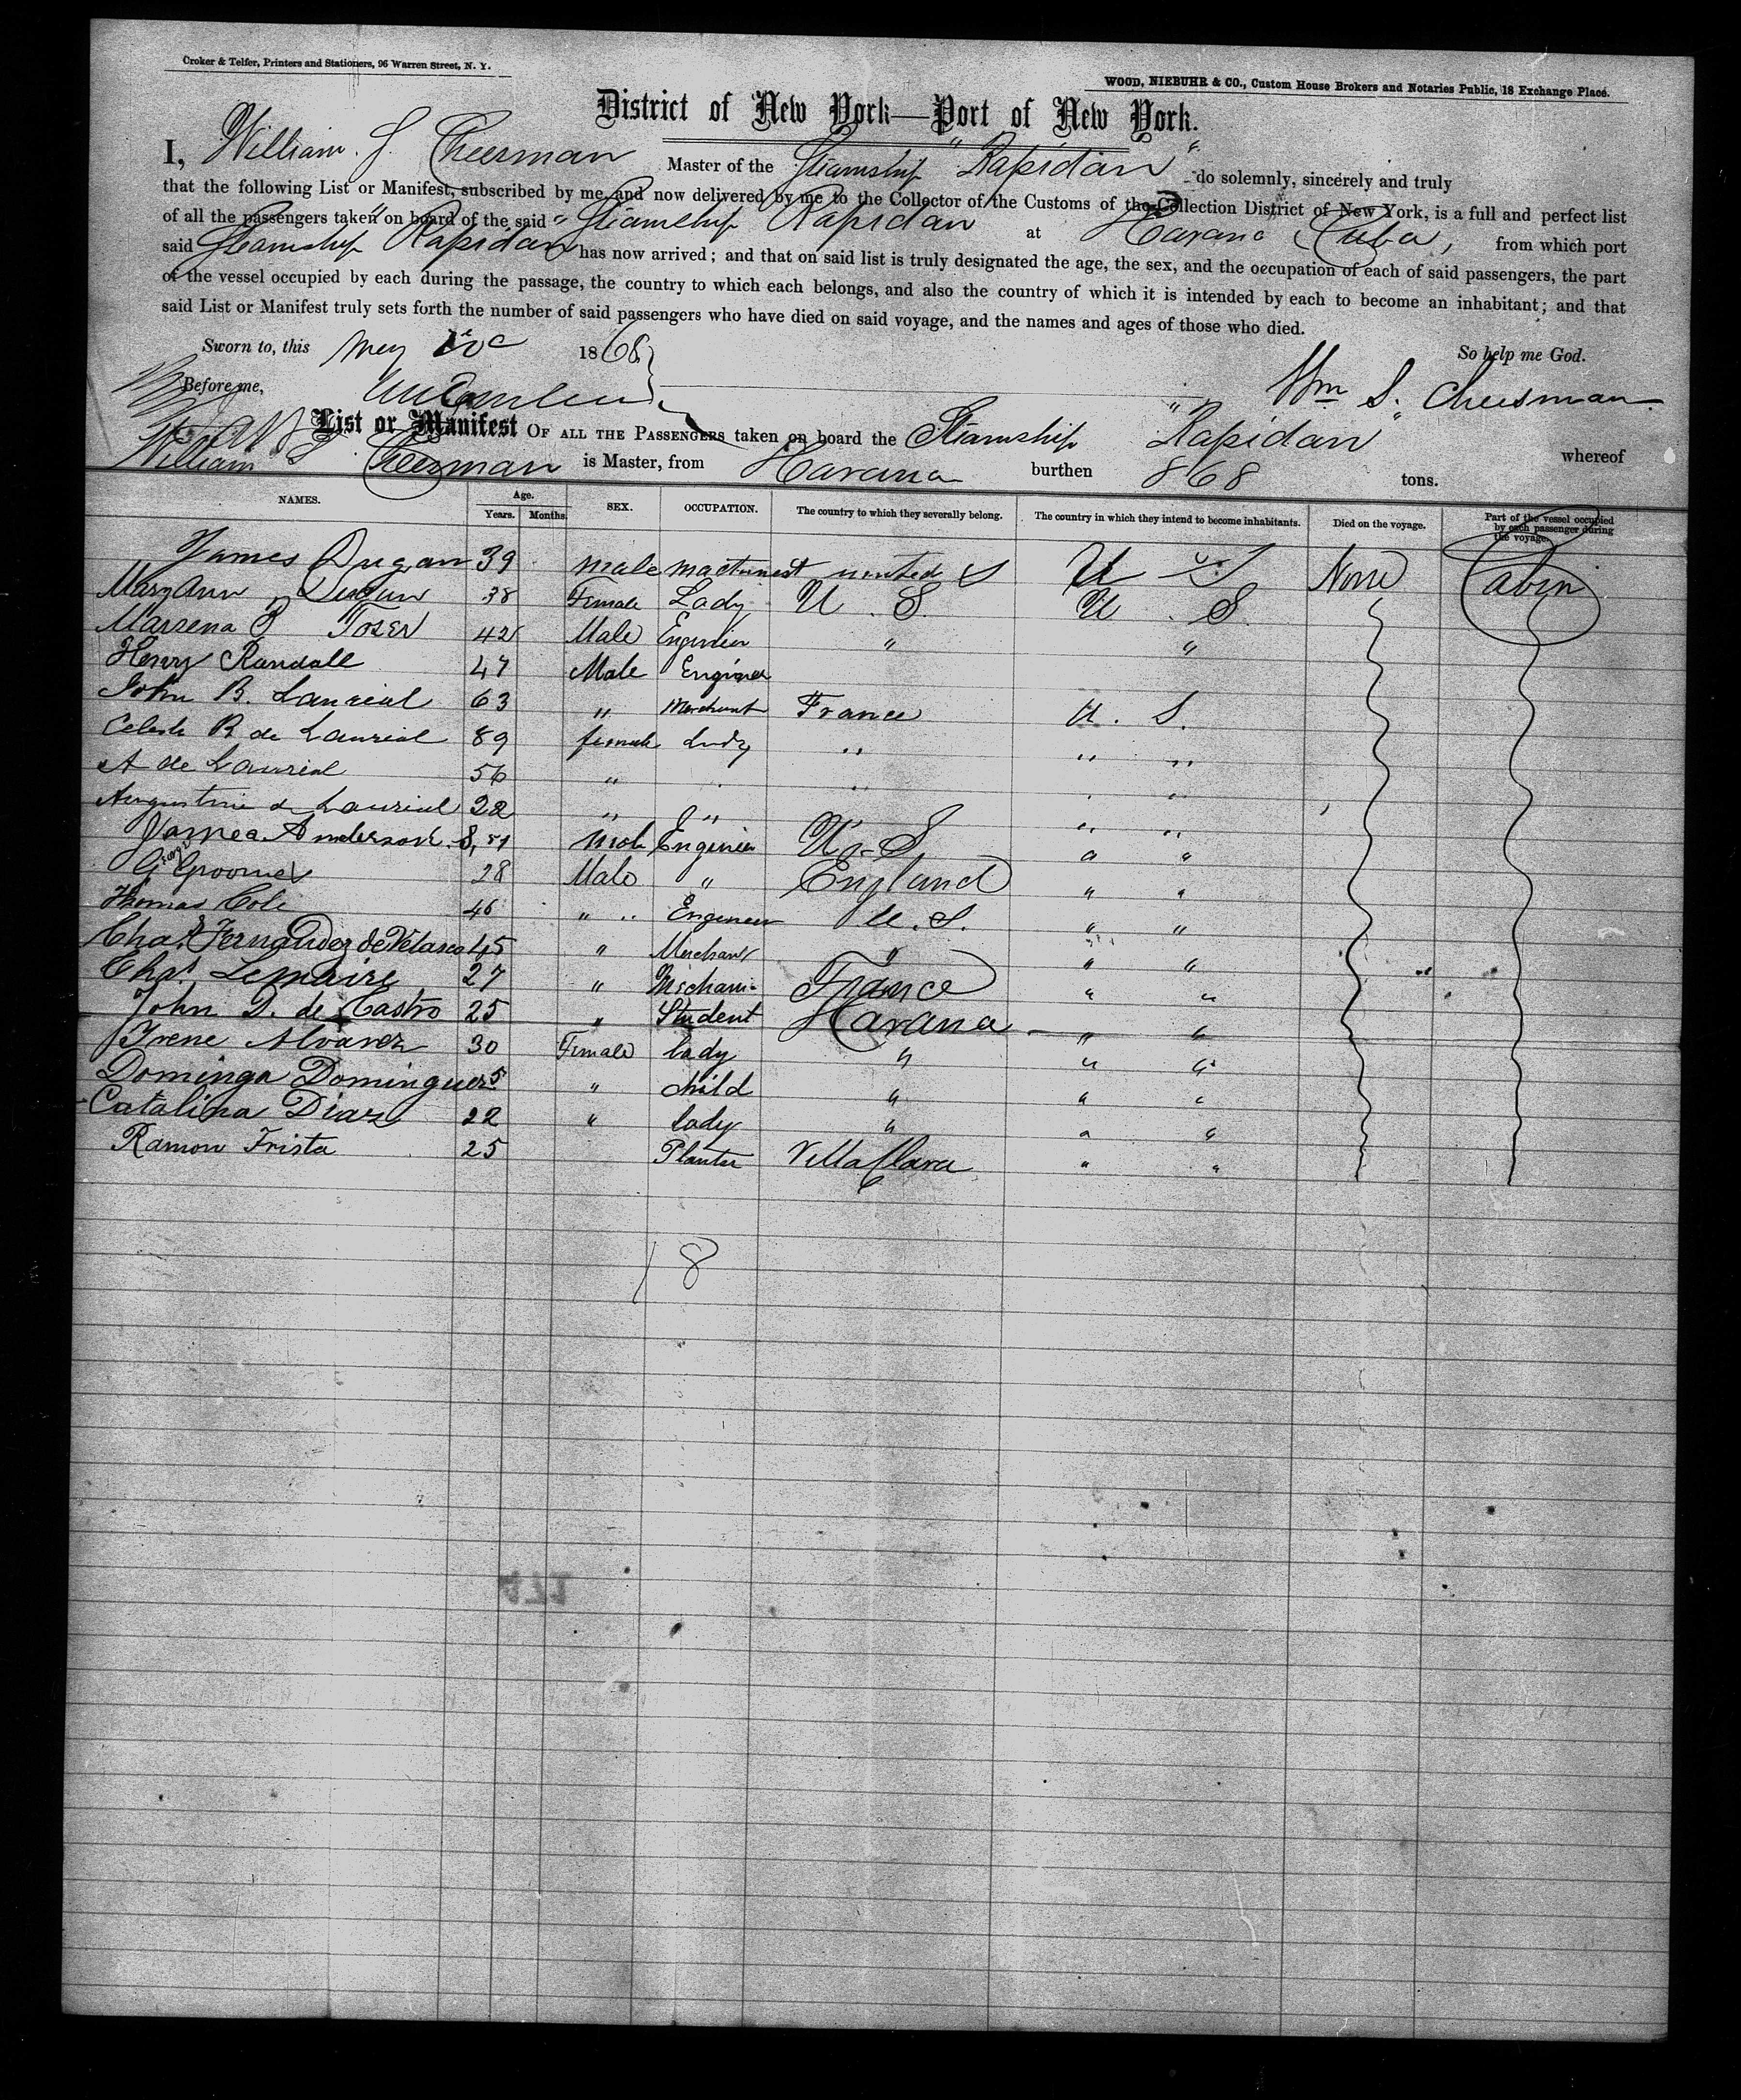 Croker & Telfer, Printers and Stationers, 96 Warren Street, N. Y.
WOOD, NIEBUHR & CO., Custom House Brokers and Notaries Public, 18 Exchange Place.
District of New York—Port of New York.
I, William S. Cheesman Master of the Steamship "Rapidan" do solemnly, sincerely and truly
that the following List or Manifest, subscribed by me, and now delivered by me to the Collector of the Customs of the Collection District of New York, is a full and perfect list
of all the passengers taken on board of the said Steamship Rapidan at Havana Cuba, from which port
said Steamship Rapidan has now arrived; and that on said list is truly designated the age, the sex, and the occupation of each of said passengers, the part
of the vessel occupied by each during the passage, the country to which each belongs, and also the country of which it is intended by each to become an inhabitant; and that
said List or Manifest truly sets forth the number of said passengers who have died on said voyage, and the names and ages of those who died.
Sworn to, this May 1868 So help me God.
Before me, Wm S. Cheesman
List or Manifest OF ALL THE PASSENGERS taken on board the Steamship "Rapidan" whereof
William S Cheesman is Master, from Havana burthen 868 tons.
NAMES. Age. Years. Months. SEX. OCCUPATION. The country to which they severally belong. The country in which they intend to become inhabitants. Died on the voyage. Part of the vessel occupied by each passenger during the voyage.
James Dugan 39 male machinest united S U S None Cabin
Mary Ann Dugan 38 Female Lady U. S. U. S.
Marsena P Tozer 42 Male Engineer " "
Henry Randall 47 Male Engineer
John B. Laurial 63 " Merchant France U. S.
Celeste B de Laurial 89 female Lady " " "
A de Laurial 56 " " " "
Augustine de Laurial 22 " " " " "
James Anderson 51 male Engineer U. S. " "
George Groomes 28 Male " England " "
Thomas Cole 46 " " Engineer U. S. " "
Chas Fernandez de Velasco 45 " Merchant " " "
Chas. Lemaire 27 " Mechanic France " "
John D. de Castro 25 " Student Havana " "
Irene Alvarez 30 Female lady " " "
Dominga Dominguez 5 " child " " "
Catalina Diaz 22 " lady " " "
Ramon Trista 25 Planter Villa Clara " "
18